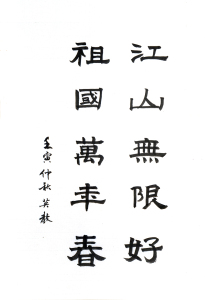 江山無限好
祖國萬年春
壬寅仲秋英敏